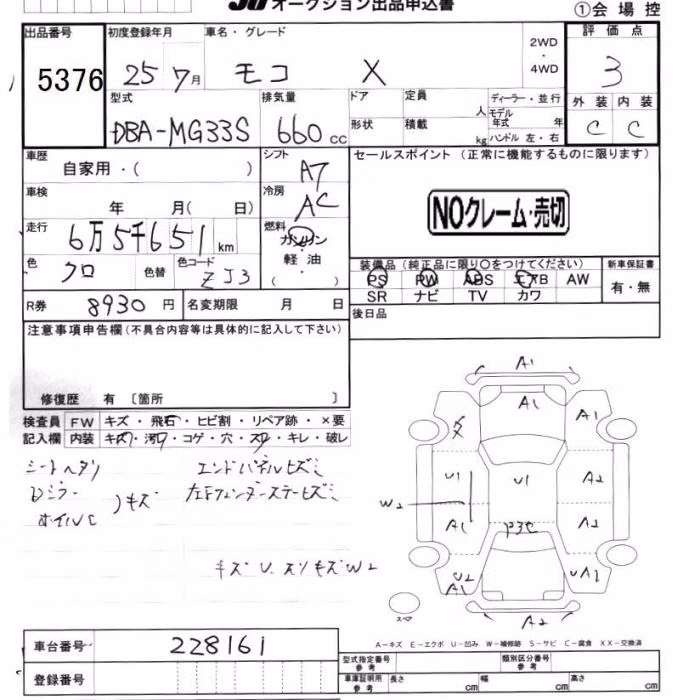 JU オークション出品申込書
①会場控
出品番号 初度登録年月 車名・グレード 2WD・4WD 評価点
5376 25 7月 モコ X 3
型式 排気量 ドア 定員 人 ディーラー・並行 外装 内装
DBA-MG33S 660cc 形状 積載 kg モデル年式 年 ハンドル 左・右 C C
車歴 自家用・( ) シフト A7 セールスポイント (正常に機能するものに限ります)
車検 年 月( 日) 冷房 AC NOクレーム・売切
走行 6万5千651km 燃料 ガソリン・軽油 ( )
色 クロ 色替 色コード ZJ3
装備品 (純正品に限り○をつけてください) 新車保証書
PS PW ABS エアB AW 有・無
SR ナビ TV カワ
R券 8930円 名変期限 月 日 後日品
注意事項申告欄(不具合内容等は具体的に記入して下さい)
修復歴 有 〔箇所 〕
検査員 FW キズ・飛石・ヒビ割・リペア跡・×要
記入欄 内装 キズ・汚れ・コゲ・穴・スレ・キレ・破レ
シートヘタリ エンドパネルヒズミ
Dミラー 左Fフェンダーステーヒズミ
ホイルC キズ
キズ U. スリキズ W2
A1
A1 A1
U1 U1 A2
W2
A1 A2
U2 A1 UA1
スペア A2
A-キズ E-エクボ U-凹み W-補修跡 S-サビ C-腐食 XX-交換済
車台番号 228161
型式指定番号 参考 類別区分番号 参考
登録番号
車庫証明用 参考 長さ cm 幅 cm 高さ cm